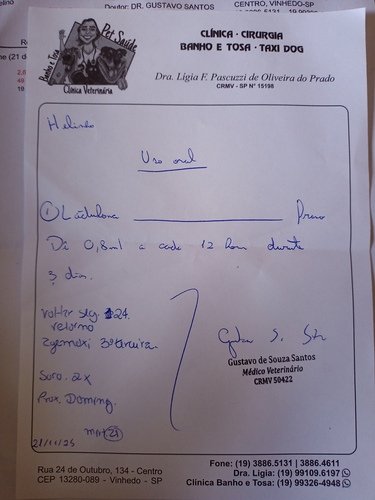 Doutor: DR. GUSTAVO SANTOS
CENTRO, VINHEDO-SP
Pet Saúde
Banho e Tosa
Clínica Veterinária
CLÍNICA · CIRURGIA
BANHO E TOSA · TAXI DOG
Dra. Lígia F. Pascuzzi de Oliveira do Prado
CRMV - SP Nº 15198
Uso oral
① Lactulona Frasco
Dê 0,8ml a cada 12 horas durante
3 dias.
Voltar seg. 24.
retorno
3º terceira
Soro 2x
Prox. Doming.
21/11/25
Gustavo de Souza Santos
Médico Veterinário
CRMV 50422
Rua 24 de Outubro, 134 - Centro
CEP 13280-089 - Vinhedo - SP
Fone: (19) 3886.5131 | 3886.4611
Dra. Lígia: (19) 99109.6197
Clínica Banho e Tosa: (19) 99326-4948